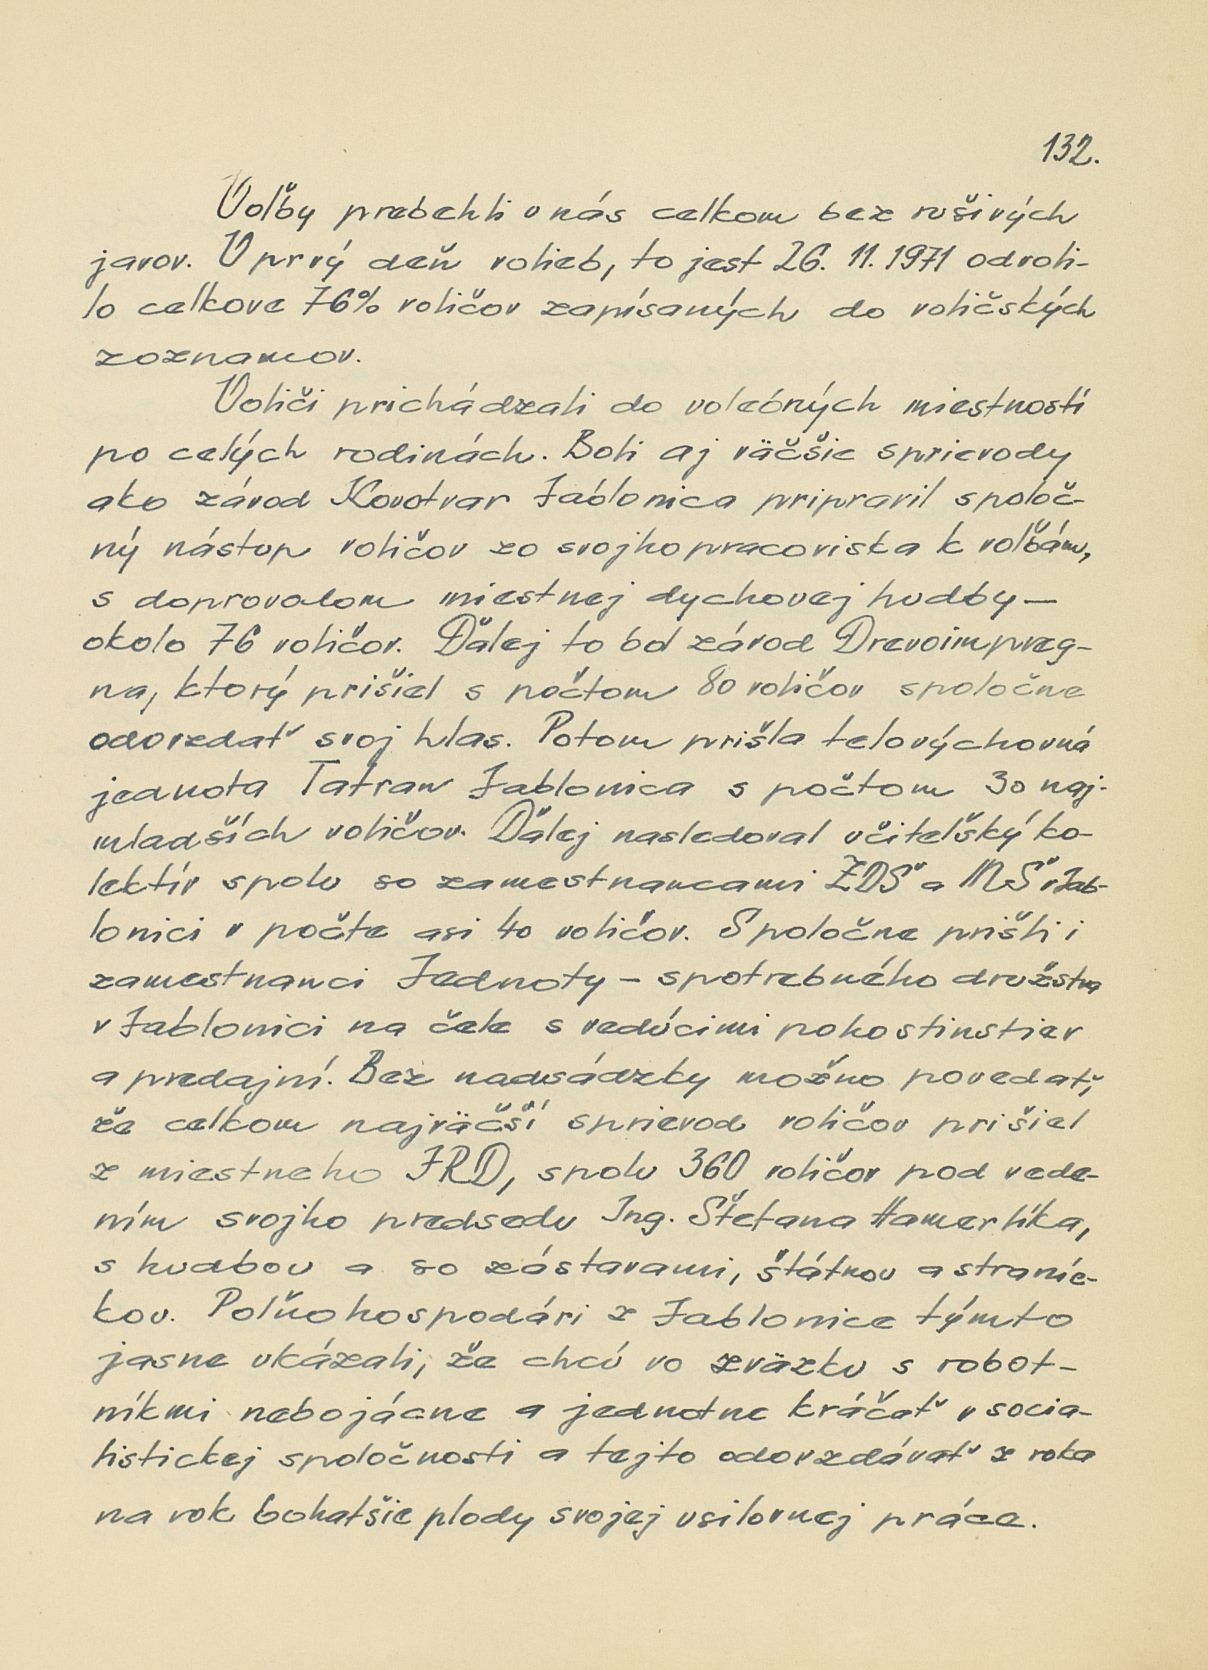 132.
Voľby prebehli u nás celkom bez rušivých
javov. V prvý deň volieb, to jest 26. 11. 1971 odvoli-
lo celkove 76% voličov zapísaných do voličských
zoznamov.
Voliči prichádzali do volebných miestností
po celých rodinách. Boli aj väčšie sprievody
ako závod Kovotvar Jablonica pripravil spoloč-
ný nástup voličov zo svojho pracoviska k voľbám,
s doprovodom miestnej dychovej hudby –
okolo 76 voličov. Ďalej to bol závod Drevoimpreg-
na, ktorý prišiel s počtom 80 voličov spoločne
odovzdať svoj hlas. Potom prišla telovýchovná
jednota Tatran Jablonica s počtom 30 naj-
mladších voličov. Ďalej nasledoval učiteľský ko-
lektív spolu so zamestnancami ZDŠ a MŠ v Jab-
lonici v počte asi 40 voličov. Spoločne prišli i
zamestnanci Jednoty – spotrebného družstva
v Jablonici na čele s vedúcimi pohostinstiev
a predajní. Bez nadsádzky možno povedať,
že celkom najväčší sprievod voličov prišiel
z miestneho JRD, spolu 360 voličov pod vede-
ním svojho predsedu Ing. Štefana Hamerlíka,
s hudbou a so zástavami, štátnou a straníc-
kou. Poľnohospodári z Jablonice týmto
jasne ukázali, že chcú vo zväzku s robot-
níkmi nebojácne a jednotne kráčať v socia-
listickej spoločnosti a tejto odovzdávať z roka
na rok bohatšie plody svojej usilovnej práce.